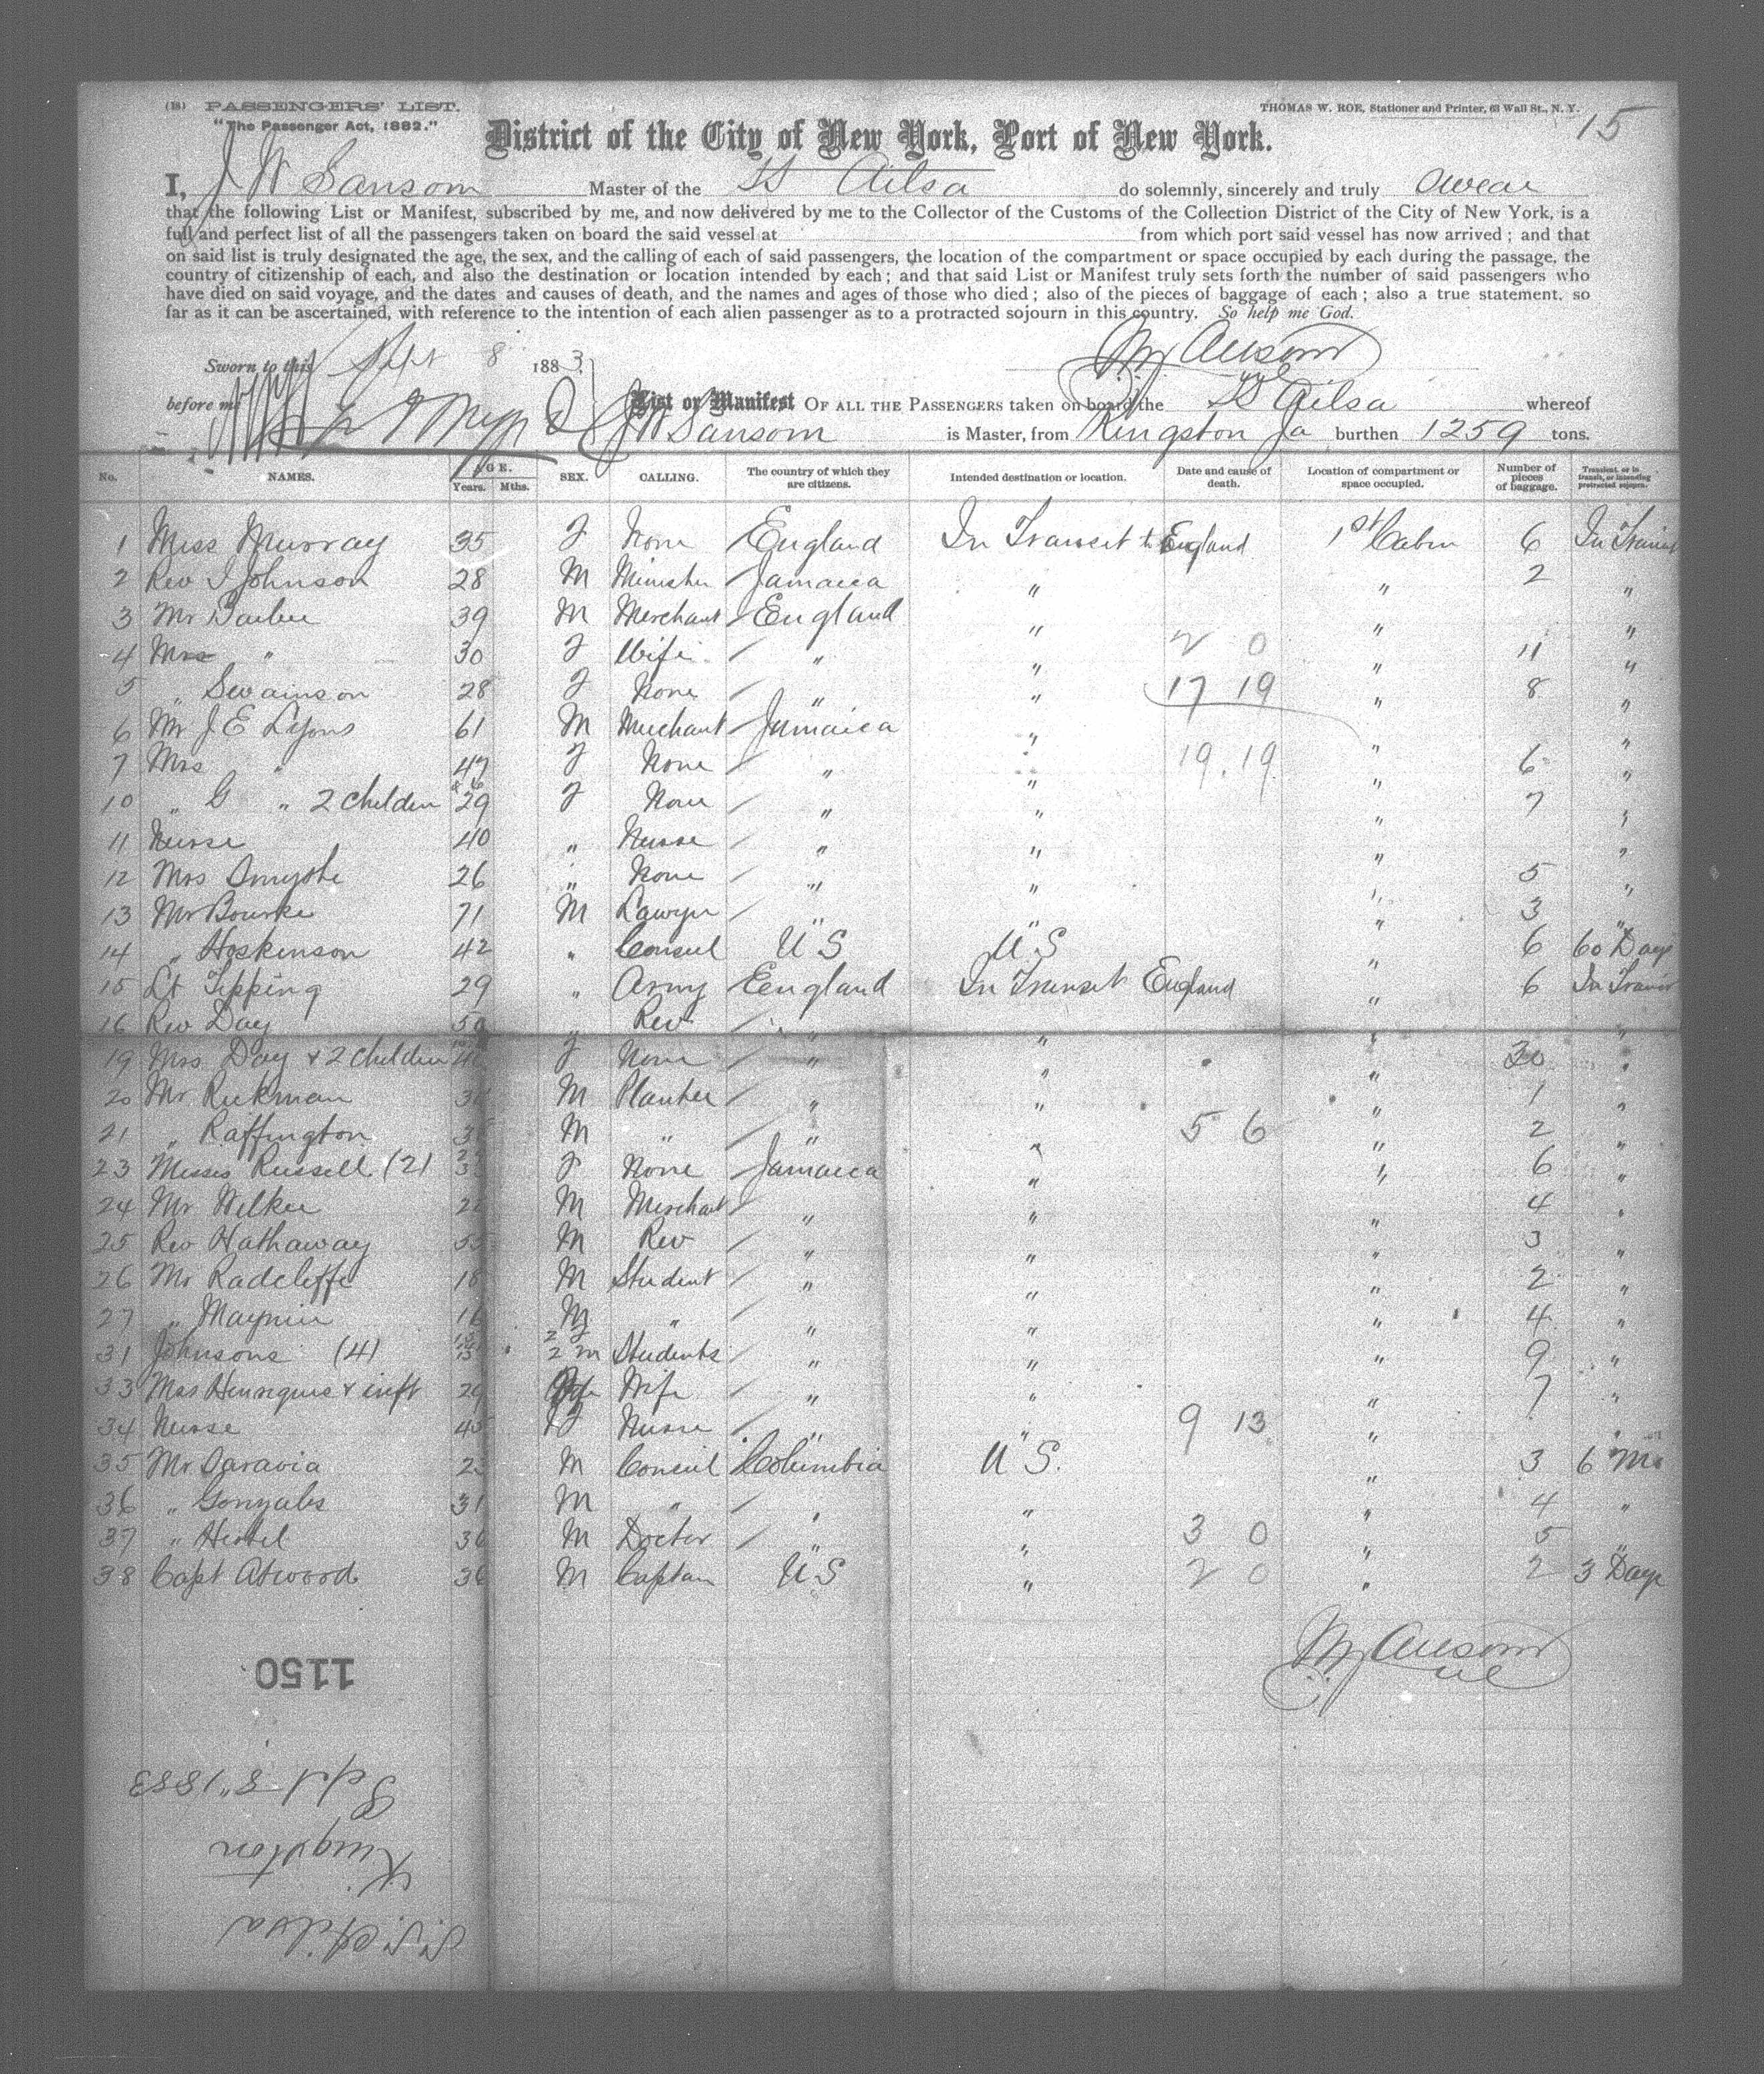 (18) PASSENGERS' LIST.
THOMAS W. ROE, Stationer and Printer, 63 Wall St., N. Y.
15
"The Passenger Act, 1882."
District of the City of New York, Port of New York.
I, J W Sansom Master of the SS Ailsa do solemnly, sincerely and truly swear
that the following List or Manifest, subscribed by me, and now delivered by me to the Collector of the Customs of the Collection District of the City of New York, is a
full and perfect list of all the passengers taken on board the said vessel at from which port said vessel has now arrived; and that
on said list is truly designated the age, the sex, and the calling of each of said passengers, the location of the compartment or space occupied by each during the passage, the
country of citizenship of each, and also the destination or location intended by each; and that said List or Manifest truly sets forth the number of said passengers who
have died on said voyage, and the dates and causes of death, and the names and ages of those who died; also of the pieces of baggage of each; also a true statement, so
far as it can be ascertained, with reference to the intention of each alien passenger as to a protracted sojourn in this country. So help me God.
Sworn to this Sept 8 1883
before me
List or Manifest OF ALL THE PASSENGERS taken on board the SS Ailsa whereof
J W Sansom is Master, from Kingston Ja burthen 1259 tons.
No. NAMES. AGE. Years. Mths. SEX. CALLING. The country of which they are citizens. Intended destination or location. Date and cause of death. Location of compartment or space occupied. Number of pieces of baggage. Transient, or in transit, or intending protracted sojourn.
1 Miss Murray 35 F None England In Transit to England 1st Cabin 6 In Transit
2 Rev J Johnson 28 M Minister Jamaica " " 2 "
3 Mr 39 M Merchant England " " "
4 Mrs " 30 F Wife " " 2 0 " 11 "
5 " Swainson 28 F None " " 17 19 " 8 "
6 Mr J E Lyons 61 M Merchant Jamaica " " "
7 Mrs " 47 F None " " 19.19 " 6 "
10 " G " 2 children 29 F None " " " 7 "
11 Nurse 40 " Nurse " " " "
12 Mrs Smythe 26 " None " " " 5 "
13 Mr Bourke 71 M Lawyer " " " 3 "
14 " Hoskinson 42 " Consul U S U S " 6 60 Days
15 Lt Tipping 29 " Army England In Transit England " 6 In Transit
16 Rev Day " Rev " " " "
19 Mrs Day & 2 children F None " " " 20 "
20 Mr Ruckman M Planter " " " 1 "
21 " Raffington M " " " 5 6 " 2 "
23 Misses Russell (2) F None Jamaica " " 6 "
24 Mr M Merchant " " " 4 "
25 Rev Hathaway M Rev " " " 3 "
26 Mr Radcliffe 18 M Student " " " 2 "
27 " 16 M " " " " 4 "
31 Johnsons (4) 2 F 2 m Students " " " 9 "
33 Mrs Henriques & inft 29 Wife " " " 7 "
34 Nurse F Nurse " " 9 13 "
35 Mr Saravia M Consul Columbia U S. " 3 6 Mo
36 " Gonzales 31 M " " " " 4 "
37 " M Doctor " " 3 0 " 5 "
38 Capt Atwood 36 M Captain U S " 2 0 " 2 3 Days
1150
Sept 8" 1883
Kingston
S.S. Ailsa